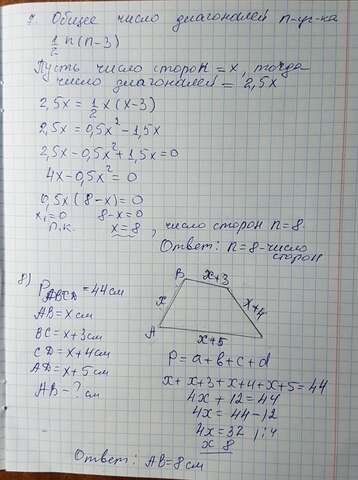 7 Общее число диагоналей n-уг-ка
1/2 n(n-3)
Пусть число сторон = x, тогда
число диагоналей = 2,5x
2,5x = 1/2 x (x-3)
2,5x = 0,5x² - 1,5x
2,5x - 0,5x² + 1,5x = 0
4x - 0,5x² = 0
0,5x (8-x) = 0
x₁=0 8-x=0
п.к. x=8, число сторон n=8
Ответ: n=8 - число
сторон
8) P ABCD = 44см
AB = x см
BC = x+3см
CD = x+4см
AD = x+5см
AB - ? см
B x+3
x x+4
A x+5
P = a+b+c+d
x + x+3 + x+4 + x+5 = 44
4x + 12 = 44
4x = 44-12
4x = 32 |:4
x 8
Ответ: AB = 8см